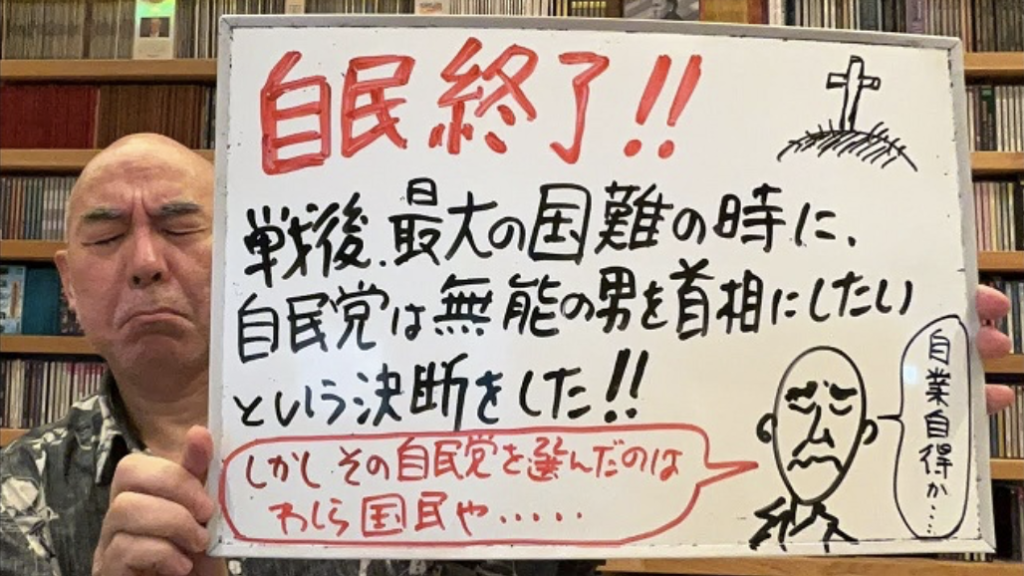 自民終了!!
戦後、最大の国難の時に、
自民党は無能の男を首相にしたい
という決断をした!!
しかしその自民党を選んだのは
わしら国民や.....
自業自得か....